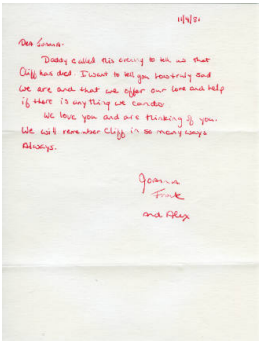 11/9/80
Dear
Daddy called this evening to tell us that
Cliff has died. I want to tell you how truly sad
we are and that we offer our love and help
if there is anything we can do.
We love you and are thinking of you.
We will remember Cliff in so many ways
Always.
Joanna
Frank
and Alex